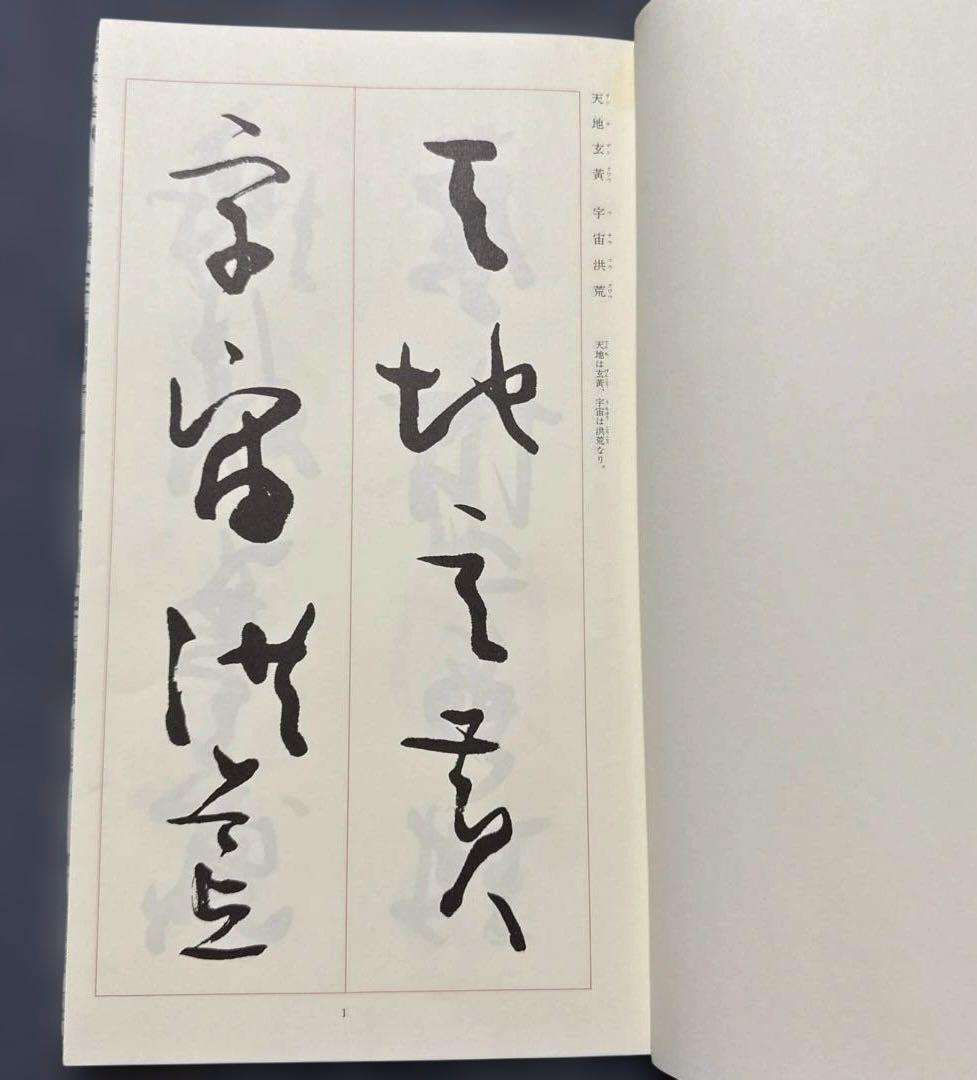 天地玄黃 宇宙洪荒
天地は玄黃、宇宙は洪荒なり。
天地玄黃
宇宙洪荒
1